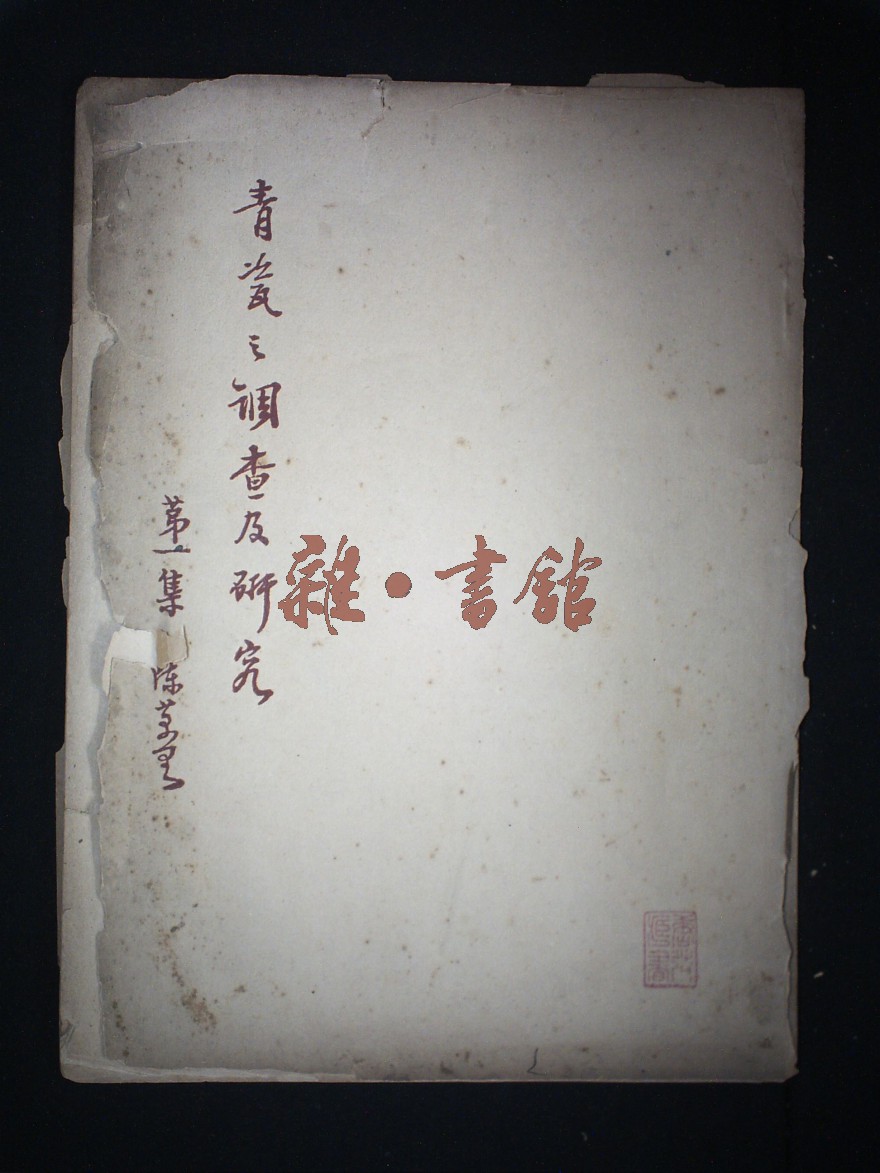 青瓷之調查及研究
第一集 陈万里
雜·書館